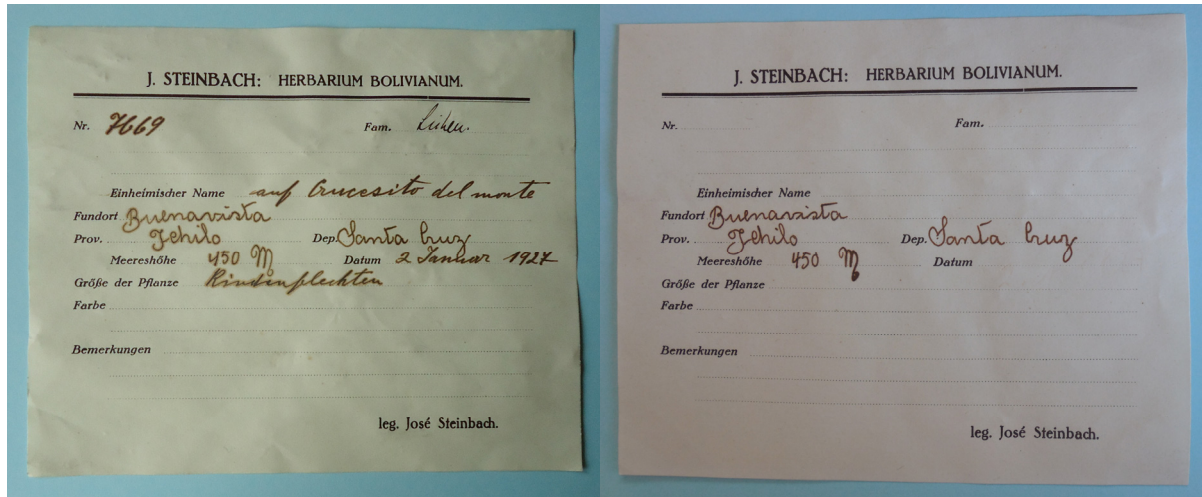 J. STEINBACH: HERBARIUM BOLIVIANUM.
Nr. 7669 Fam. Lichen.
Einheimischer Name auf Crucesito del monte
Fundort Buenavista
Prov. Ichilo Dep. Santa Cruz
Meereshöhe 450 M Datum 2 Januar 1927
Größe der Pflanze Rindenflechten
Farbe
Bemerkungen
leg. José Steinbach.
J. STEINBACH: HERBARIUM BOLIVIANUM.
Nr. Fam.
Einheimischer Name
Fundort Buenavista
Prov. Ichilo Dep. Santa Cruz
Meereshöhe 450 M Datum
Größe der Pflanze
Farbe
Bemerkungen
leg. José Steinbach.